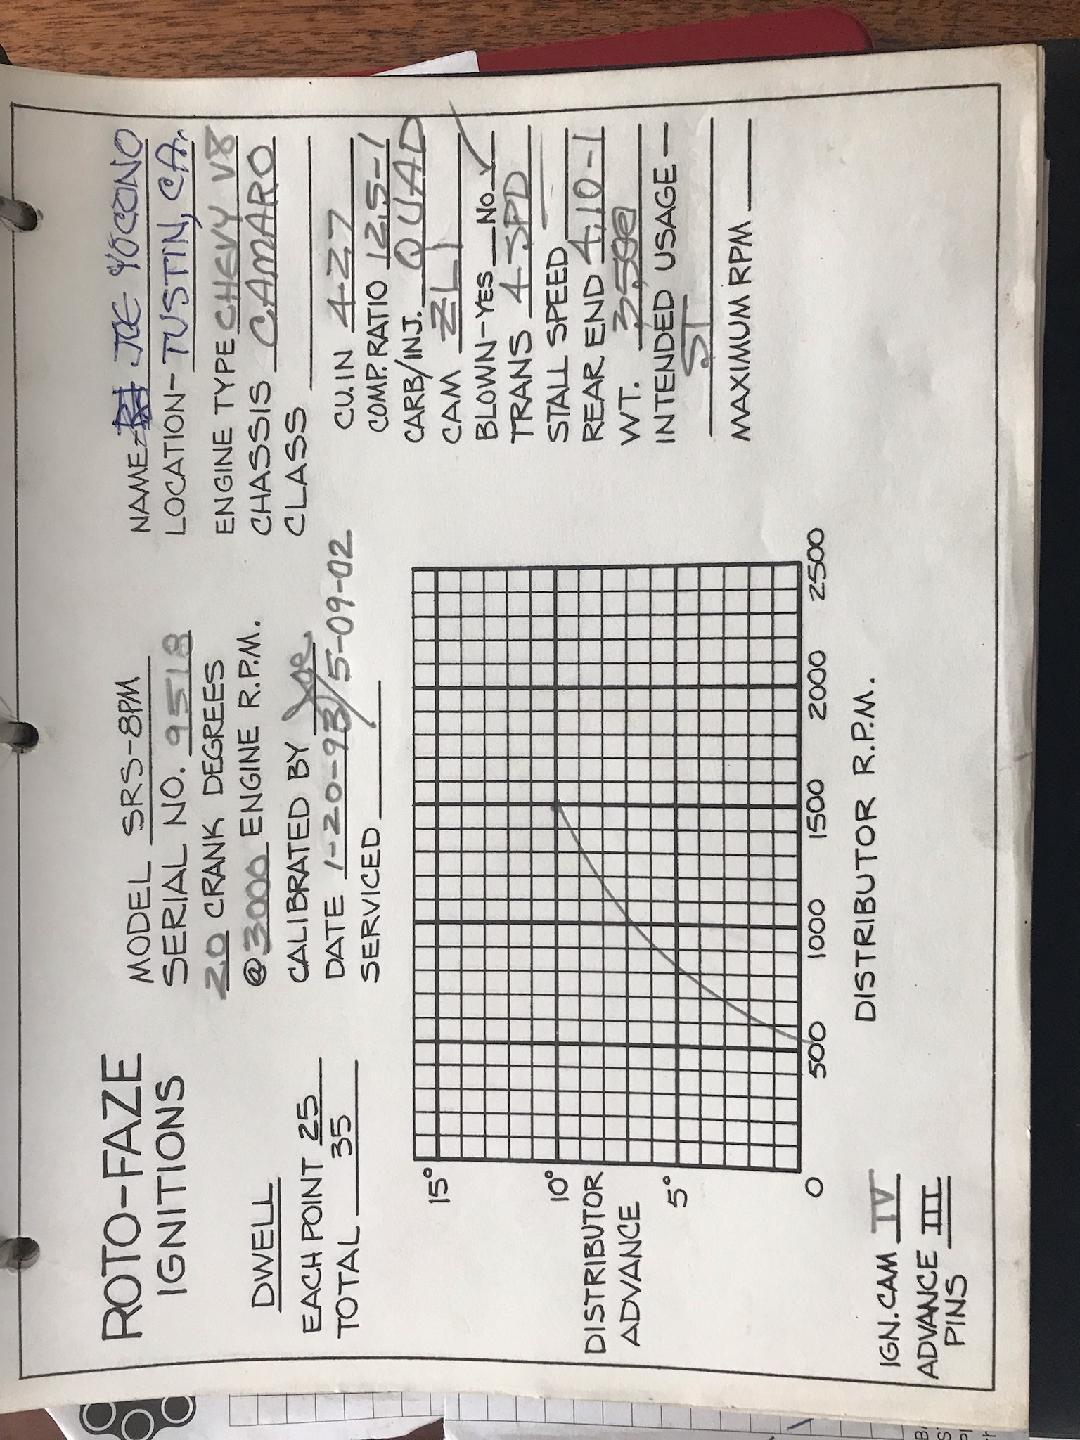 ROTO-FAZE
IGNITIONS
DWELL
EACH POINT 25
TOTAL 35
MODEL SRS-8PM
SERIAL NO. 9518
20 CRANK DEGREES
@ 3000 ENGINE R.P.M.
CALIBRATED BY Joe
DATE 1-20-93/5-09-02
SERVICED
NAME- JOE YOCONO
LOCATION- TUSTIN, CA.
ENGINE TYPE CHEVY V8
CHASSIS CAMARO
CLASS
CU.IN 427
COMP. RATIO 12.5-1
CARB/INJ. QUAD
CAM ZL1
BLOWN-YES NO ✓
TRANS 4 SPD
STALL SPEED
REAR END 4.10-1
WT. 3500
INTENDED USAGE-
ST
MAXIMUM RPM
15°
10°
5°
0
DISTRIBUTOR
ADVANCE
500 1000 1500 2000 2500
DISTRIBUTOR R.P.M.
IGN. CAM IV
ADVANCE III
PINS